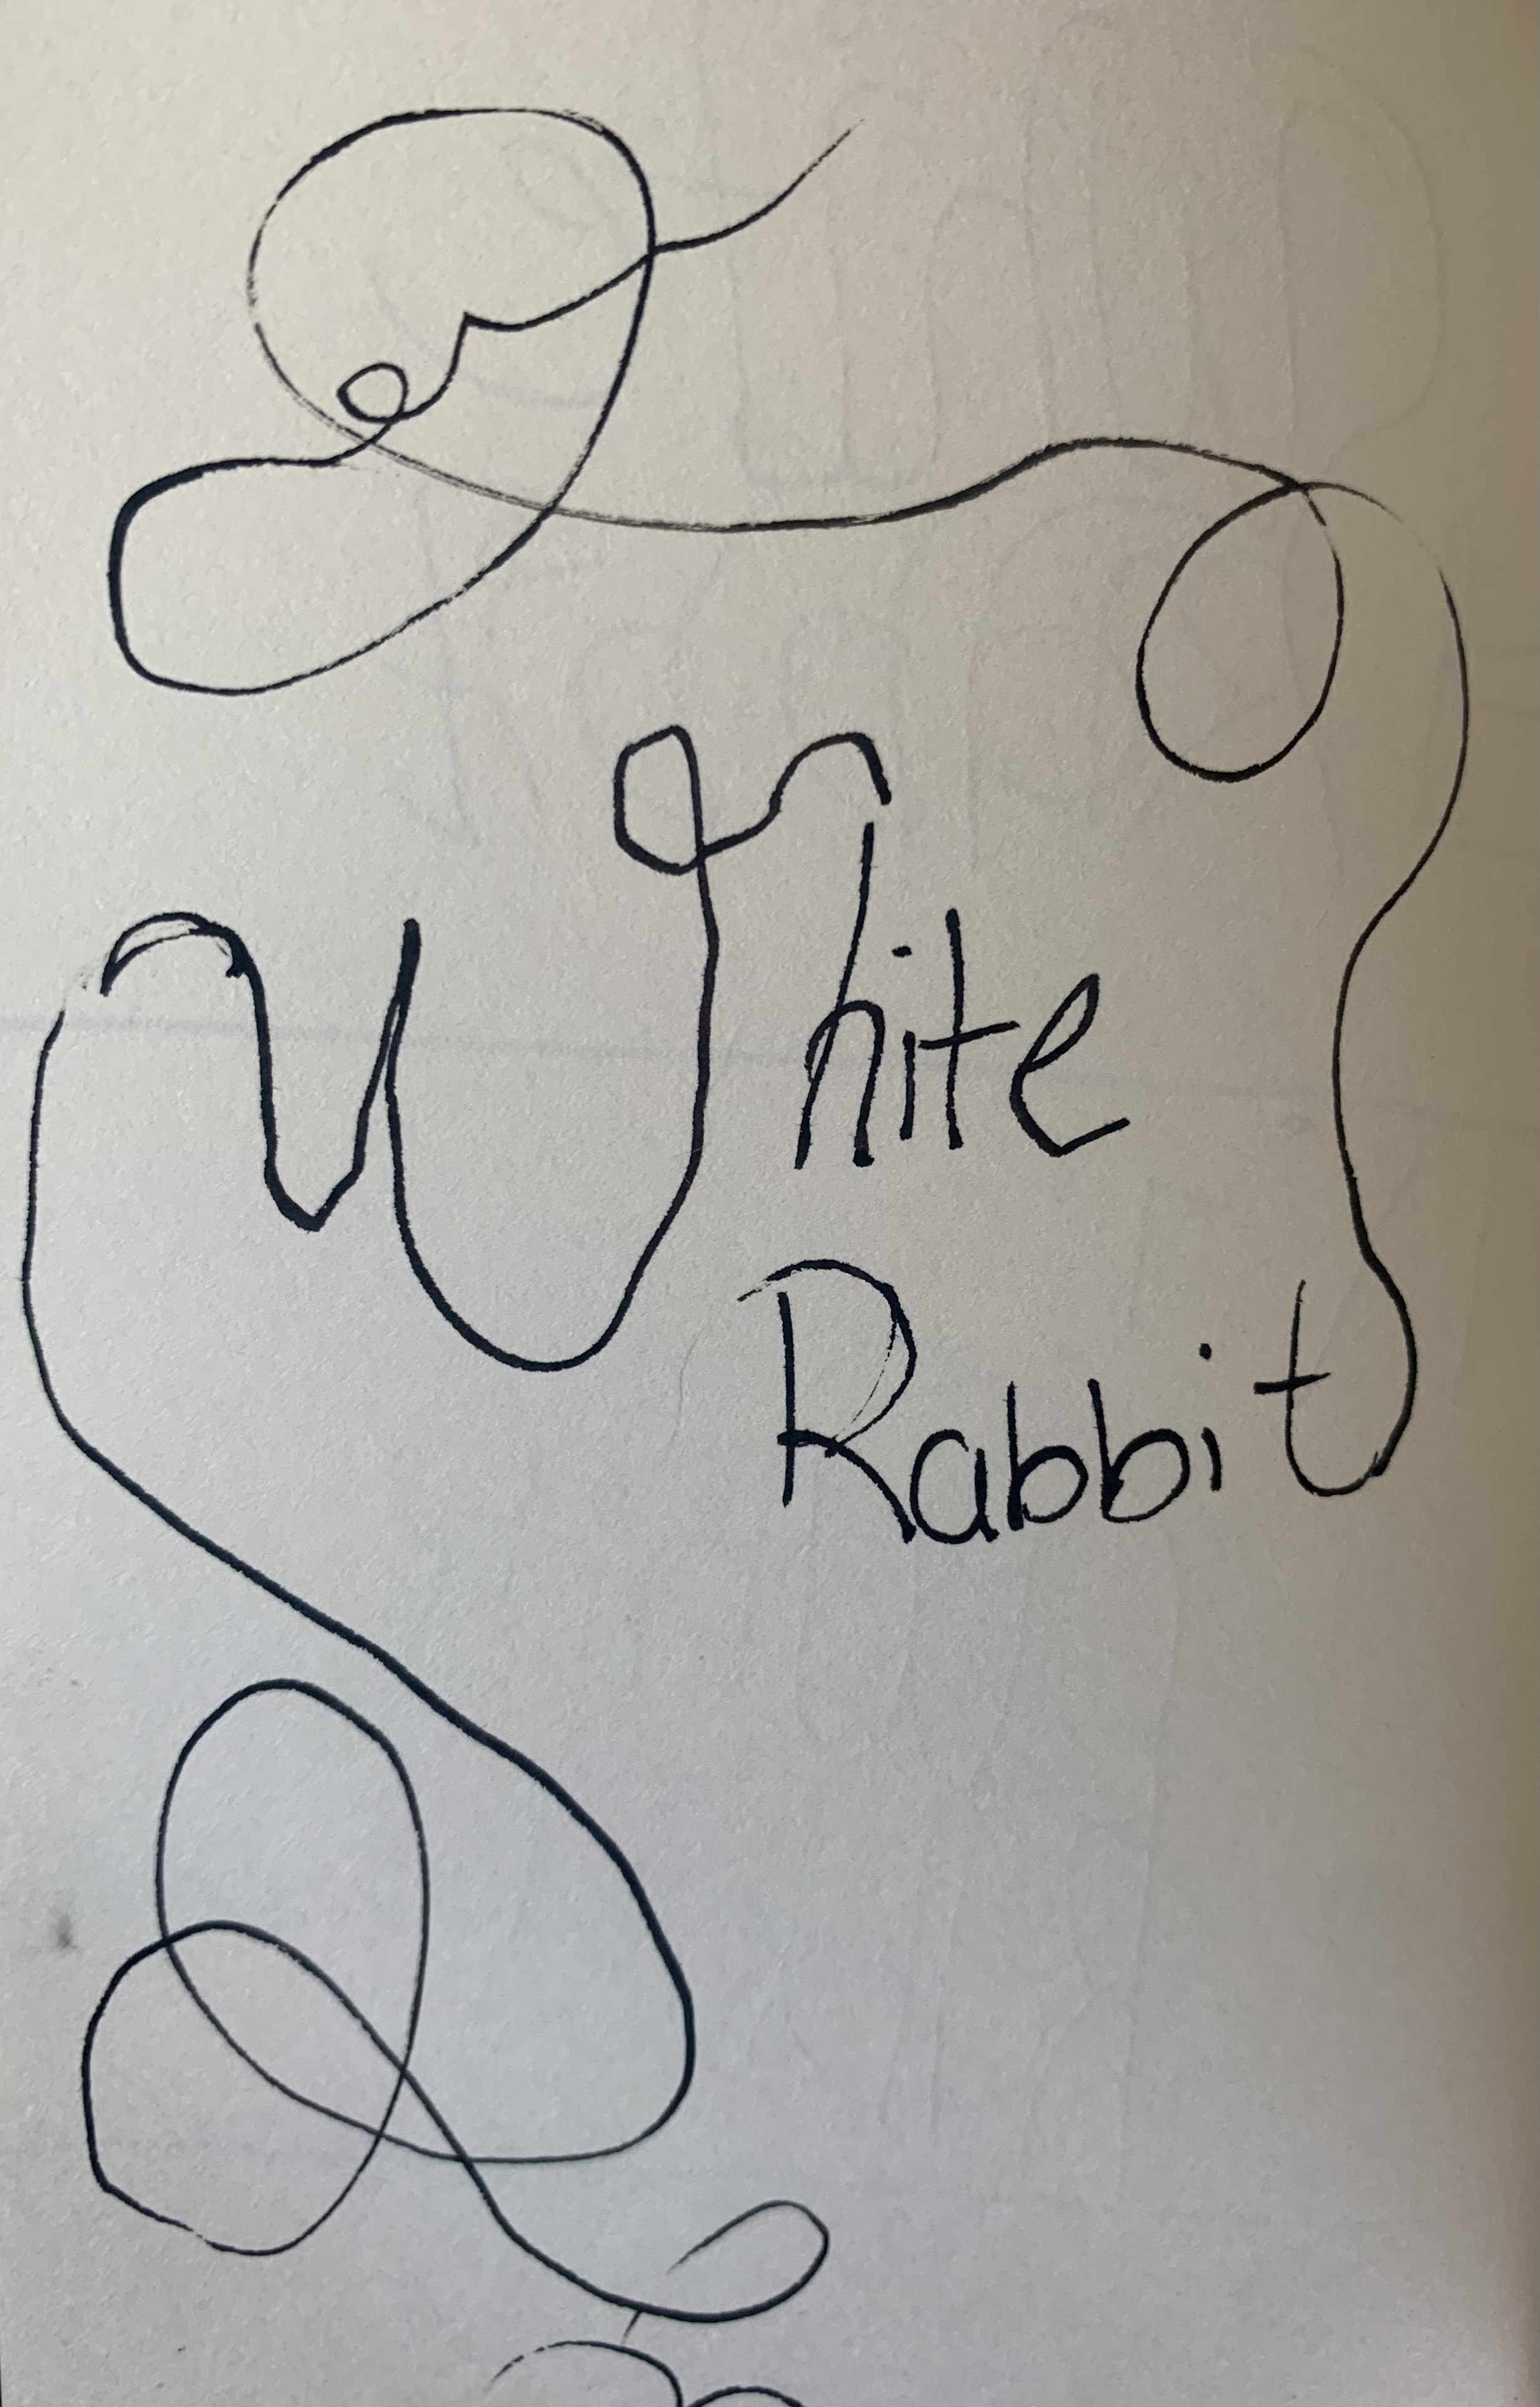 White
Rabbit